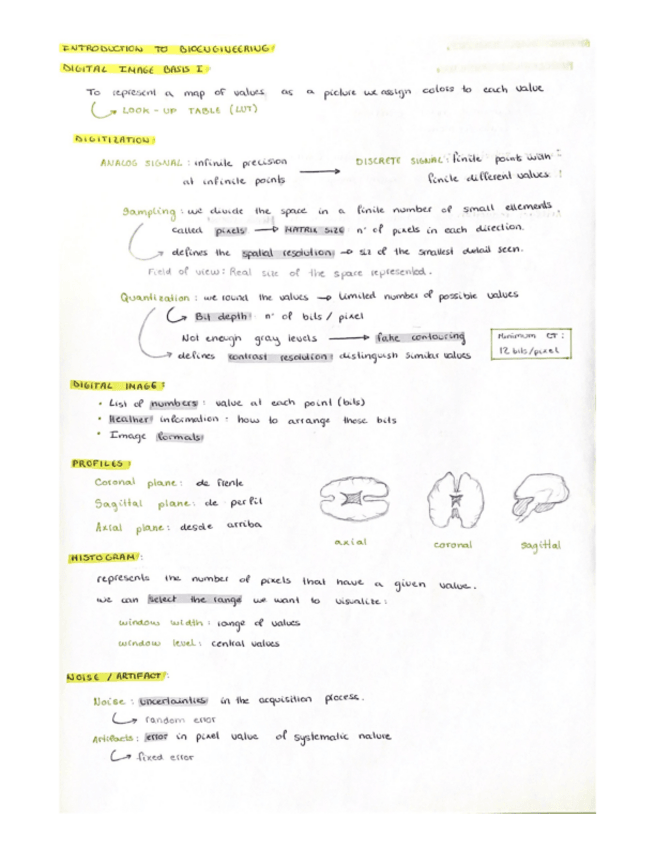 INTRODUCTION TO BIOENGINEERING:
DIGITAL IMAGE BASIS I:
To represent a map of values as a picture we assign colors to each value
LOOK-UP TABLE (LUT)
DIGITIZATION:
ANALOG SIGNAL: infinite precision
at infinite points
DISCRETE SIGNAL: finite points with
finite different values
Sampling: we divide the space in a finite number of small ellements
called pixels → MATRIX SIZE: nº of pixels in each direction.
defines the spatial resolution → siz of the smallest detail seen.
Field of view: Real size of the space represented.
Quantization: we round the values → Limited number of possible values
Bit depth: nº of bits / pixel
Not enough gray levels → fake contouring
defines contrast resolution: distinguish similar values
Minimum CT:
12 bits/pixel
DIGITAL IMAGE:
• List of numbers: value at each point (bits)
• Heather information: how to arrange these bits
• Image formats
PROFILES:
Coronal plane: de frente
Sagittal plane: de perfil
Axial plane: desde arriba
axial
coronal
sagittal
HISTOGRAM:
represents the number of pixels that have a given value.
we can select the range we want to visualize:
window width: range of values
window level: central values
NOISE / ARTIFACT:
Noise: uncertainties in the acquisition process.
random error
Artifacts: error in pixel value of systematic nature
fixed error